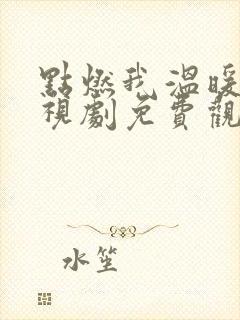 點燃我溫暖
視劇免費觀
水笙